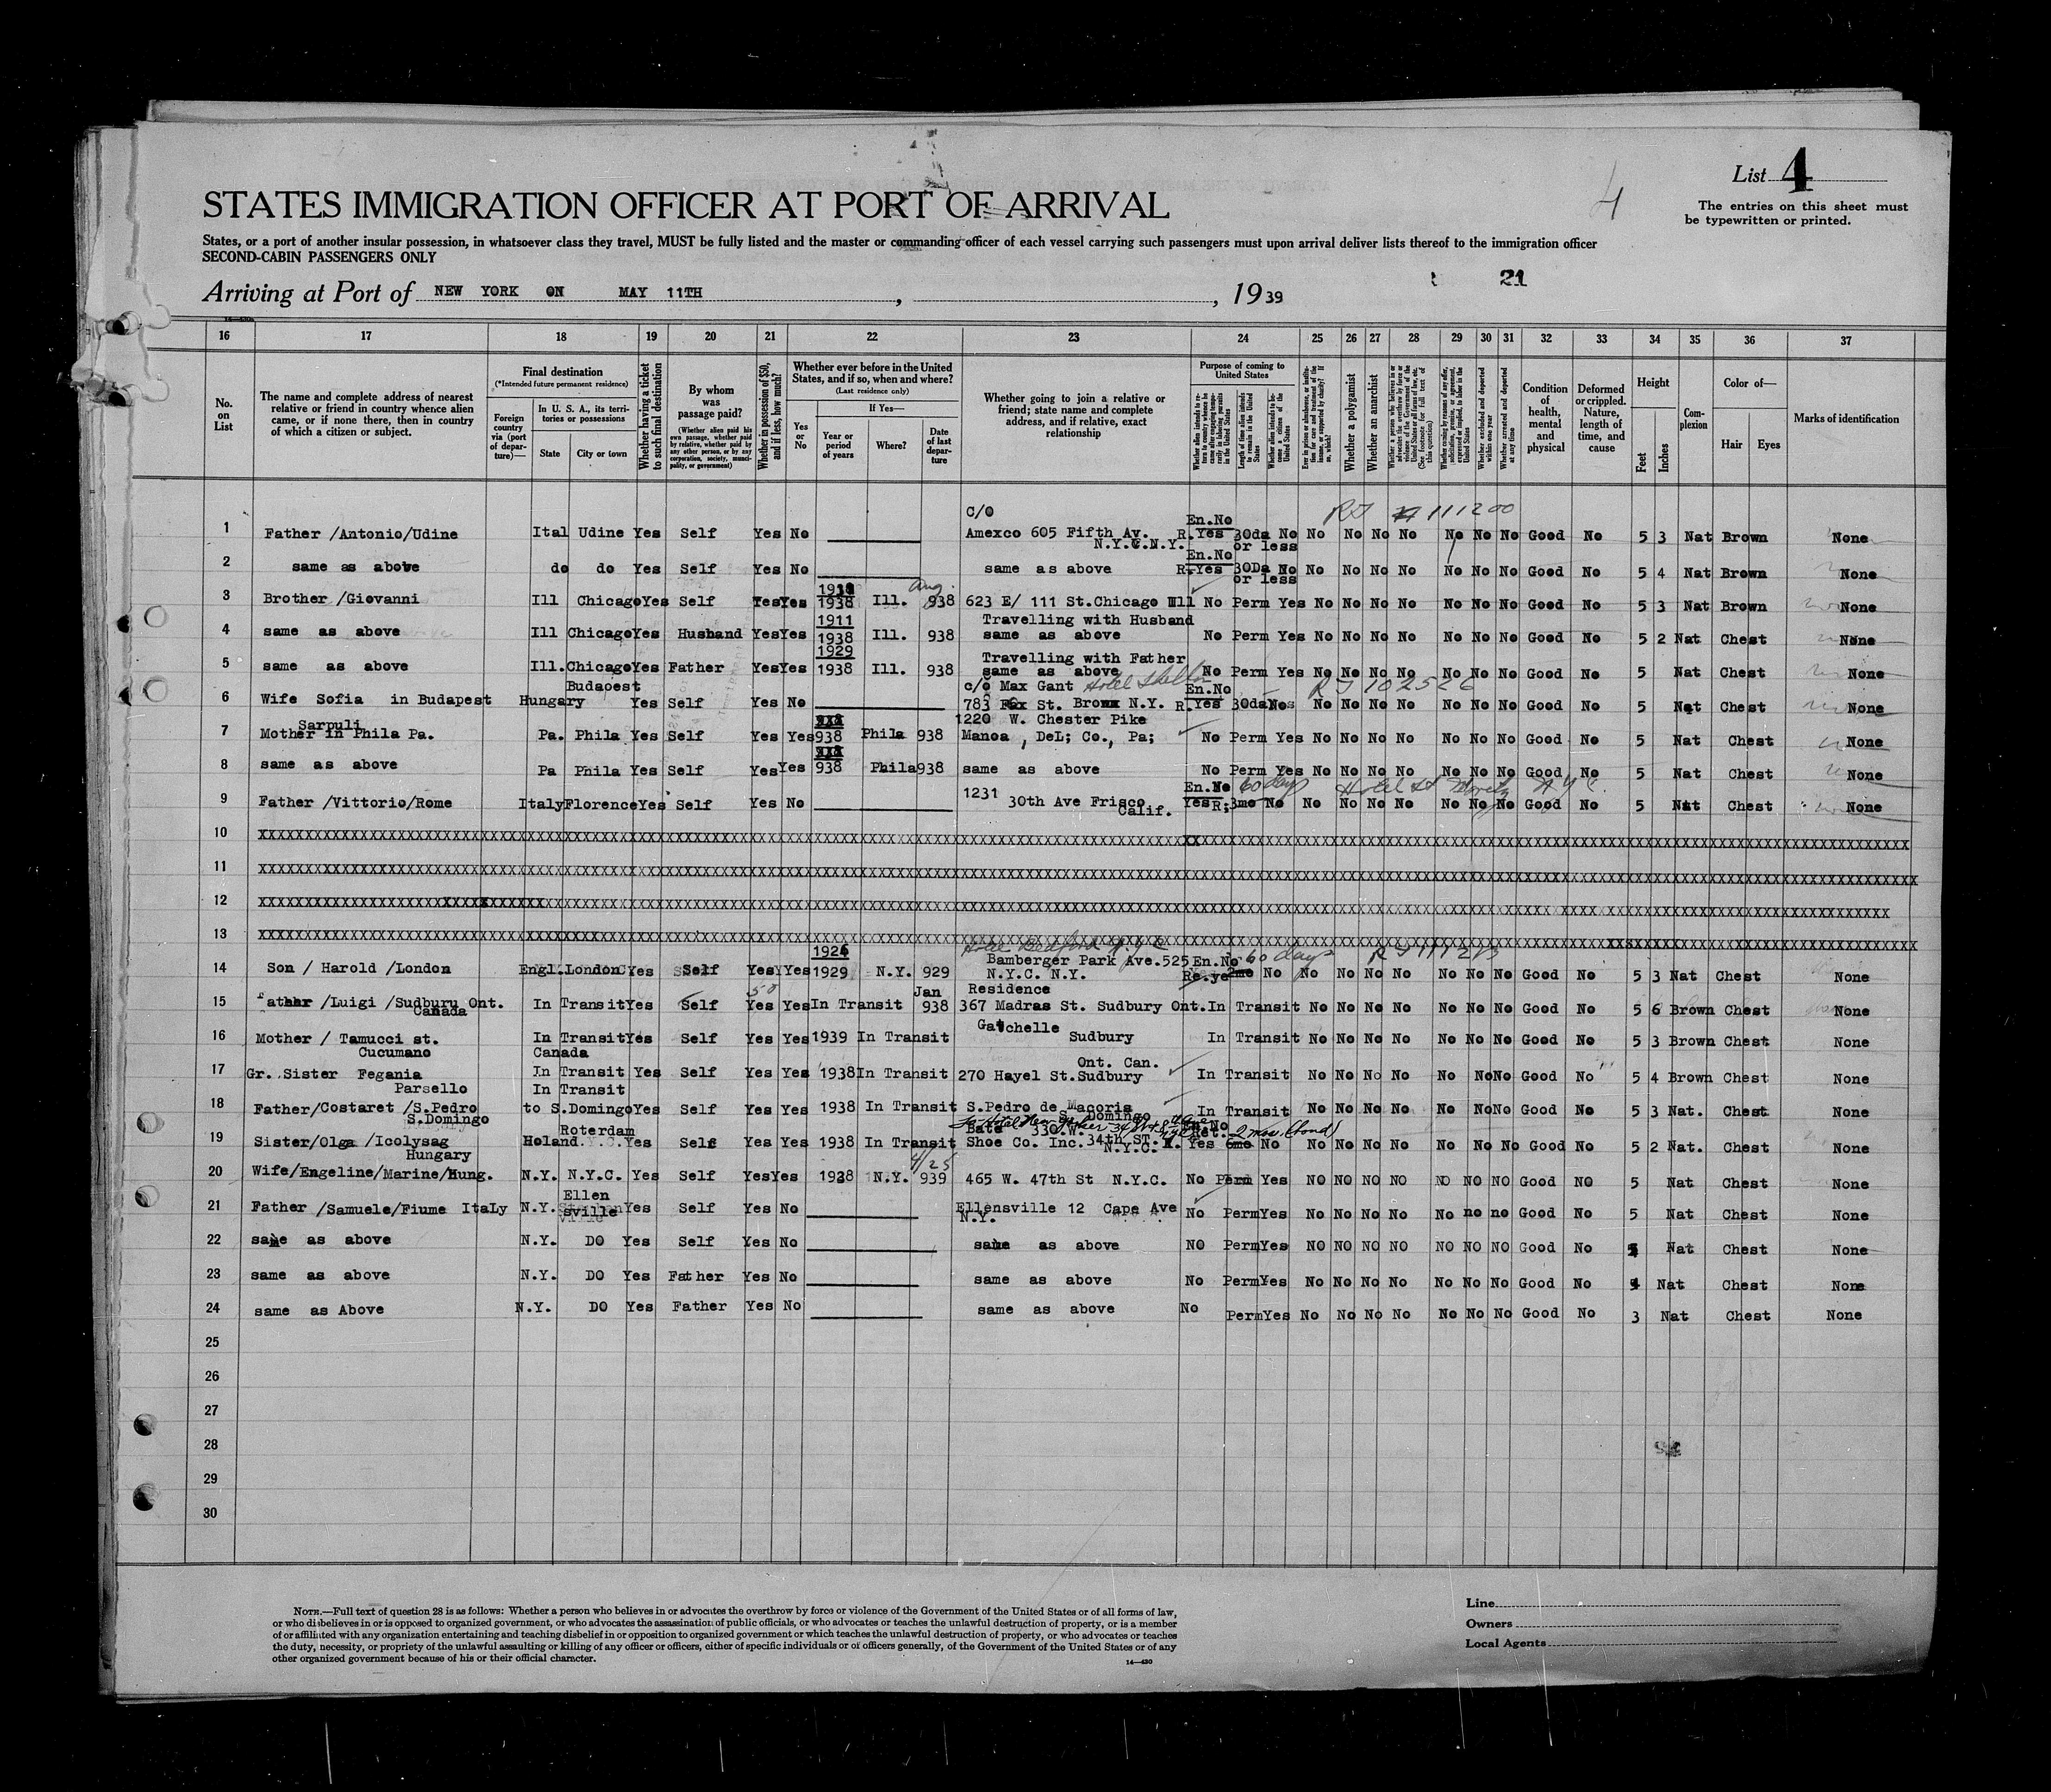 List 4
4
STATES IMMIGRATION OFFICER AT PORT OF ARRIVAL
The entries on this sheet must
be typewritten or printed.
States, or a port of another insular possession, in whatsoever class they travel, MUST be fully listed and the master or commanding officer of each vessel carrying such passengers must upon arrival deliver lists thereof to the immigration officer
SECOND-CABIN PASSENGERS ONLY
21
Arriving at Port of NEW YORK ON MAY 11TH , , 1939
16 17 18 19 20 21 22 23 24 25 26 27 28 29 30 31 32 33 34 35 36 37
No. on List
The name and complete address of nearest relative or friend in country whence alien came, or if none there, then in country of which a citizen or subject.
Final destination
(*Intended future permanent residence)
Foreign country via (port of departure)—
In U. S. A., its territories or possessions
State
City or town
Whether having a ticket to such final destination
By whom was passage paid?
(Whether alien paid his own passage, whether paid by relative, whether paid by any other person, or by any corporation, society, municipality, or government)
Whether in possession of $50, and if less, how much?
Whether ever before in the United States, and if so, when and where?
(Last residence only)
Yes or No
If Yes—
Year or period of years
Where?
Date of last departure
Whether going to join a relative or friend; state name and complete address, and if relative, exact relationship
Purpose of coming to United States
Length of time alien intends to remain in the United States
Whether alien intends to become a citizen of the United States
Whether a polygamist
Whether an anarchist
Whether excluded and deported within one year
Whether arrested and deported at any time
Condition of health, mental and physical
Deformed or crippled. Nature, length of time, and cause
Height
Feet
Inches
Complexion
Color of—
Hair
Eyes
Marks of identification
1 Father /Antonio/Udine Ital Udine Yes Self Yes No c/o Amexco 605 Fifth Av. N.Y.C.N.Y. En.No R.Yes 30da or less No No No No No No No No Good No 5 3 Nat Brown None
111200
2 same as above do do Yes Self Yes No same as above En.No R.Yes 30Da or less No No No No No No No No Good No 5 4 Nat Brown None
3 Brother /Giovanni Ill Chicago Yes Self Yes Yes 1938 Ill. Aug. 938 623 E/ 111 St.Chicago Ill No Perm Yes No No No No No No No Good No 5 3 Nat Brown None
4 same as above Ill Chicago Yes Husband Yes Yes 1911 1938 Ill. 938 Travelling with Husband same as above No Perm Yes No No No No No No No Good No 5 2 Nat Chest None
5 same as above Ill. Chicago Yes Father Yes Yes 1929 1938 Ill. 938 Travelling with Father same as above No Perm Yes No No No No No No No Good No 5 Nat Chest None
6 Wife Sofia in Budapest Hungary Budapest Yes Self Yes No c/o Max Gant Hotel Shelton 783 Fox St. Bronx N.Y. En.No R.Yes 30da No No No No No No No No Good No 5 Nat Chest None
102526
7 Mother in Phila Pa. Sarpuli Pa. Phila Yes Self Yes Yes 938 Phila 938 1220 W. Chester Pike Manoa , DeL; Co., Pa; No Perm Yes No No No No No No No Good No 5 Nat Chest None
8 same as above Pa Phila Yes Self Yes Yes 938 Phila 938 same as above No Perm Yes No No No No No No No Good No 5 Nat Chest None
9 Father /Vittorio/Rome Italy Florence Yes Self Yes No 1231 30th Ave Frisco Calif. En.No Yes R; 3mo 60 days No No No No No No No No Good No 5 Nat Chest None
10
11
12
13
14 Son / Harold /London Engl. London Yes Self Yes Yes 1926 1929 N.Y. 929 Hotel Bedford N.Y.C. Bamberger Park Ave.525 N.Y.C. N.Y. En.No Re.ye 2mo 60 days No No No No No No No No Good No 5 3 Nat Chest None
15 Father /Luigi /Sudbury Ont. Canada In Transit Yes Self 50 Yes Yes In Transit Jan 938 Residence 367 Madras St. Sudbury Ont. In Transit No No No No No No No Good No 5 6 Brown Chest None
16 Mother / Tamucci st. Cucumano In Transit Canada Yes Self Yes Yes 1939 In Transit Gatchelle Sudbury In Transit No No No No No No No Good No 5 3 Brown Chest None
17 Gr. Sister Fegania Parsello In Transit Yes Self Yes Yes 1938 In Transit 270 Hayel St. Sudbury Ont. Can. In Transit No No No No No No No Good No 5 4 Brown Chest None
18 Father/Costaret /S.Pedro S.Domingo In Transit to S.Domingo Yes Self Yes Yes 1938 In Transit S.Pedro de Macoris S. Domingo In Transit No No No No No No No Good No 5 3 Nat. Chest None
19 Sister/Olga /Icolysag Hungary Holand. Roterdam Yes Self Yes Yes 1938 In Transit Bata Shoe Co. Inc. 330 W. 34th ST. N.Y.C. En.No Ret. Yes 6mo 2 mos. (bond) No No No No No No No No Good No 5 2 Nat. Chest None
20 Wife/Engeline/Marine/Hung. N.Y. N.Y.C. Yes Self Yes Yes 1938 N.Y. 4/25 939 465 W. 47th St N.Y.C. No Perm Yes NO NO NO NO NO NO NO Good NO 5 Nat Chest None
21 Father /Samuele/Fiume ItaLy N.Y. Ellensville Yes Self Yes No Ellensville 12 Cape Ave N.Y. No Perm Yes No No No No No no no Good No 5 Nat Chest None
22 same as above N.Y. DO Yes Self Yes No same as above NO Perm Yes NO NO NO NO NO NO NO Good No Nat Chest None
23 same as above N.Y. DO Yes Father Yes No same as above No Perm Yes No No No No No No No Good No 4 Nat Chest None
24 same as Above N.Y. DO Yes Father Yes No same as above No Perm Yes No No No No No No No Good No 3 Nat Chest None
25
26
27
28
29
30
NOTE.—Full text of question 28 is as follows: Whether a person who believes in or advocates the overthrow by force or violence of the Government of the United States or of all forms of law,
or who disbelieves in or is opposed to organized government, or who advocates the assassination of public officials, or who advocates or teaches the unlawful destruction of property, or is a member
of or affiliated with any organization entertaining and teaching disbelief in or opposition to organized government or which teaches the unlawful destruction of property, or who advocates or teaches
the duty, necessity, or propriety of the unlawful assaulting or killing of any officer or officers, either of specific individuals or of officers generally, of the Government of the United States or of any
other organized government because of his or their official character.
14—430
Line
Owners
Local Agents